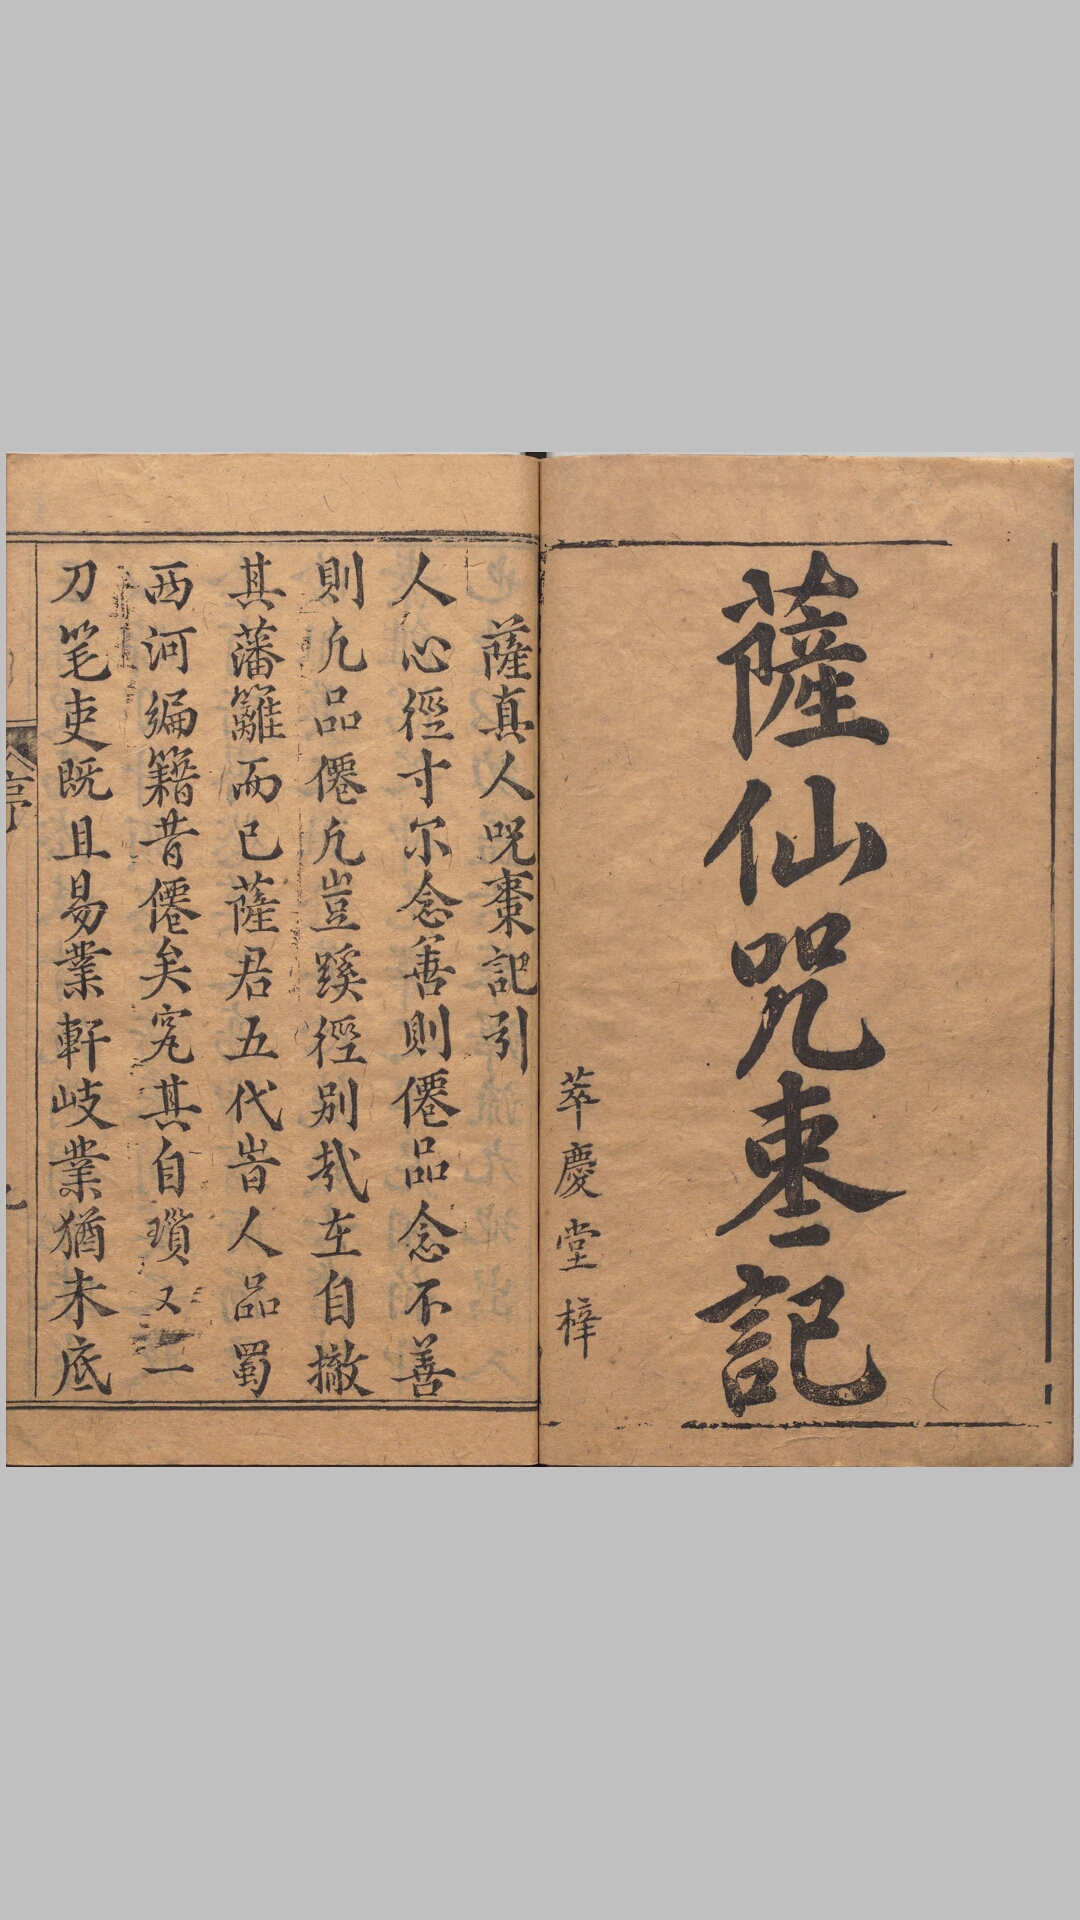 薩仙咒枣記
萃慶堂梓
薩真人咒棗記引
人心徑寸尔念善則僊品念不善
則凢品僊凢豈蹊徑別㢤在自撤
其藩籬而已薩君五代旹人品蜀
西河編籍昔僊矣究其自瓚又二
刀笔吏既且易業軒岐業猶未底
序